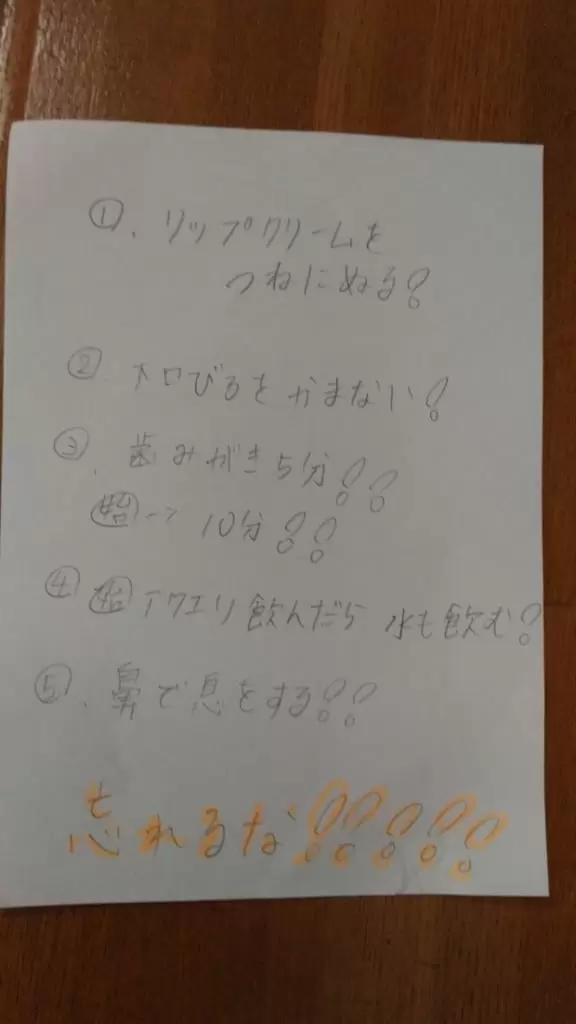 ①. リップクリームを
つねにぬる!
② 口びるをかまない!
③. 歯みがき5分!!
10分!!
④ アクエリ飲んだら 水も飲む!
⑤. 鼻で息をする!!
忘れるな!!!!!